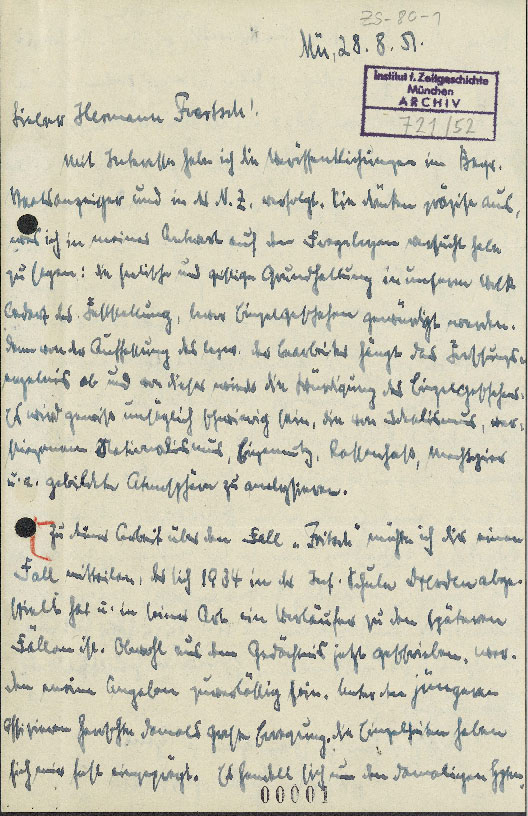 ZS-80-1
Mü, 28. 8. 51.
Institut f. Zeitgeschichte
München
ARCHIV
721/52
Lieber Hermann Foertsch!
Mit Interesse habe ich die Veröffentlichungen im Bayr.
Staatsanzeiger und in der N. Z. verfolgt. Sie drücken präzise aus,
was ich in meiner Antwort auf den Fragebogen versucht habe
zu sagen: die seelische und geistige Grundhaltung in unserem Volk
bedarf der Feststellung, bevor Einzelgeschehen gewürdigt werden.
Denn von der Auffassung des bezw. der Bearbeiter hängt das Forschungs-
ergebnis ab und von dieser wieder die Würdigung des Einzelgeschehens.
Es wird gewiss unsäglich schwierig sein, die von Idealismus, ver-
Nationalismus, Eigennutz, Rassenhass, Machtgier
u. a. gebildete Atmosphäre zu analysieren.
Zu deiner Arbeit über den Fall „Fritsch" möchte ich dir einen
Fall mitteilen, der sich 1934 in der Inf. Schule Dresden abge-
spielt hat u. in seiner Art ein Vorläufer zu den späteren
Fällen ist. Obwohl aus dem Gedächtnis jetzt geschrieben, wer-
den meine Angaben zuverlässig sein. Unter den jüngeren
Offizieren herrschte damals grosse Erregung, die Einzelheiten haben
sich mir fest eingeprägt. Es handelt sich um den damaligen Hptm.
00001